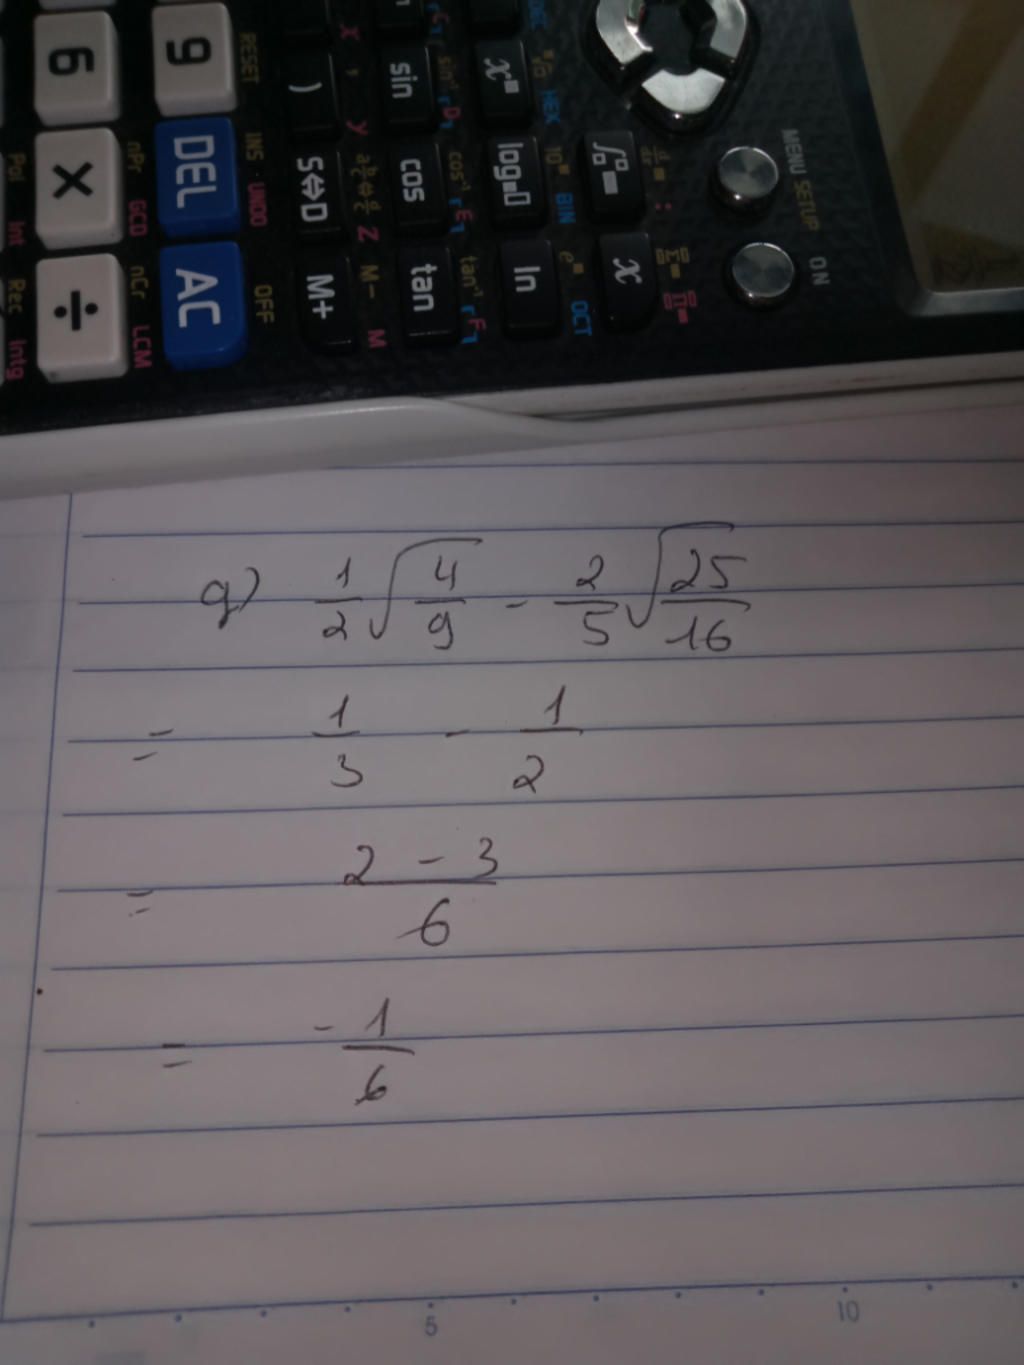 6 9 RESET ) X , sin sin⁻¹ D x■ HEX
× DEL INS UNDO S⇔D y cos cos⁻¹ E log■▯ 10■ BIN MENU SETUP
Pol Int nPr GCD
÷ AC OFF M+ Z M- M tan tan⁻¹ F ln e■ OCT x ON
Rec Intg nCr LCM
g) 1/2 √(4/9) - 2/5 √(25/16)
= 1/3 - 1/2
= (2 - 3)/6
= -1/6
5 10